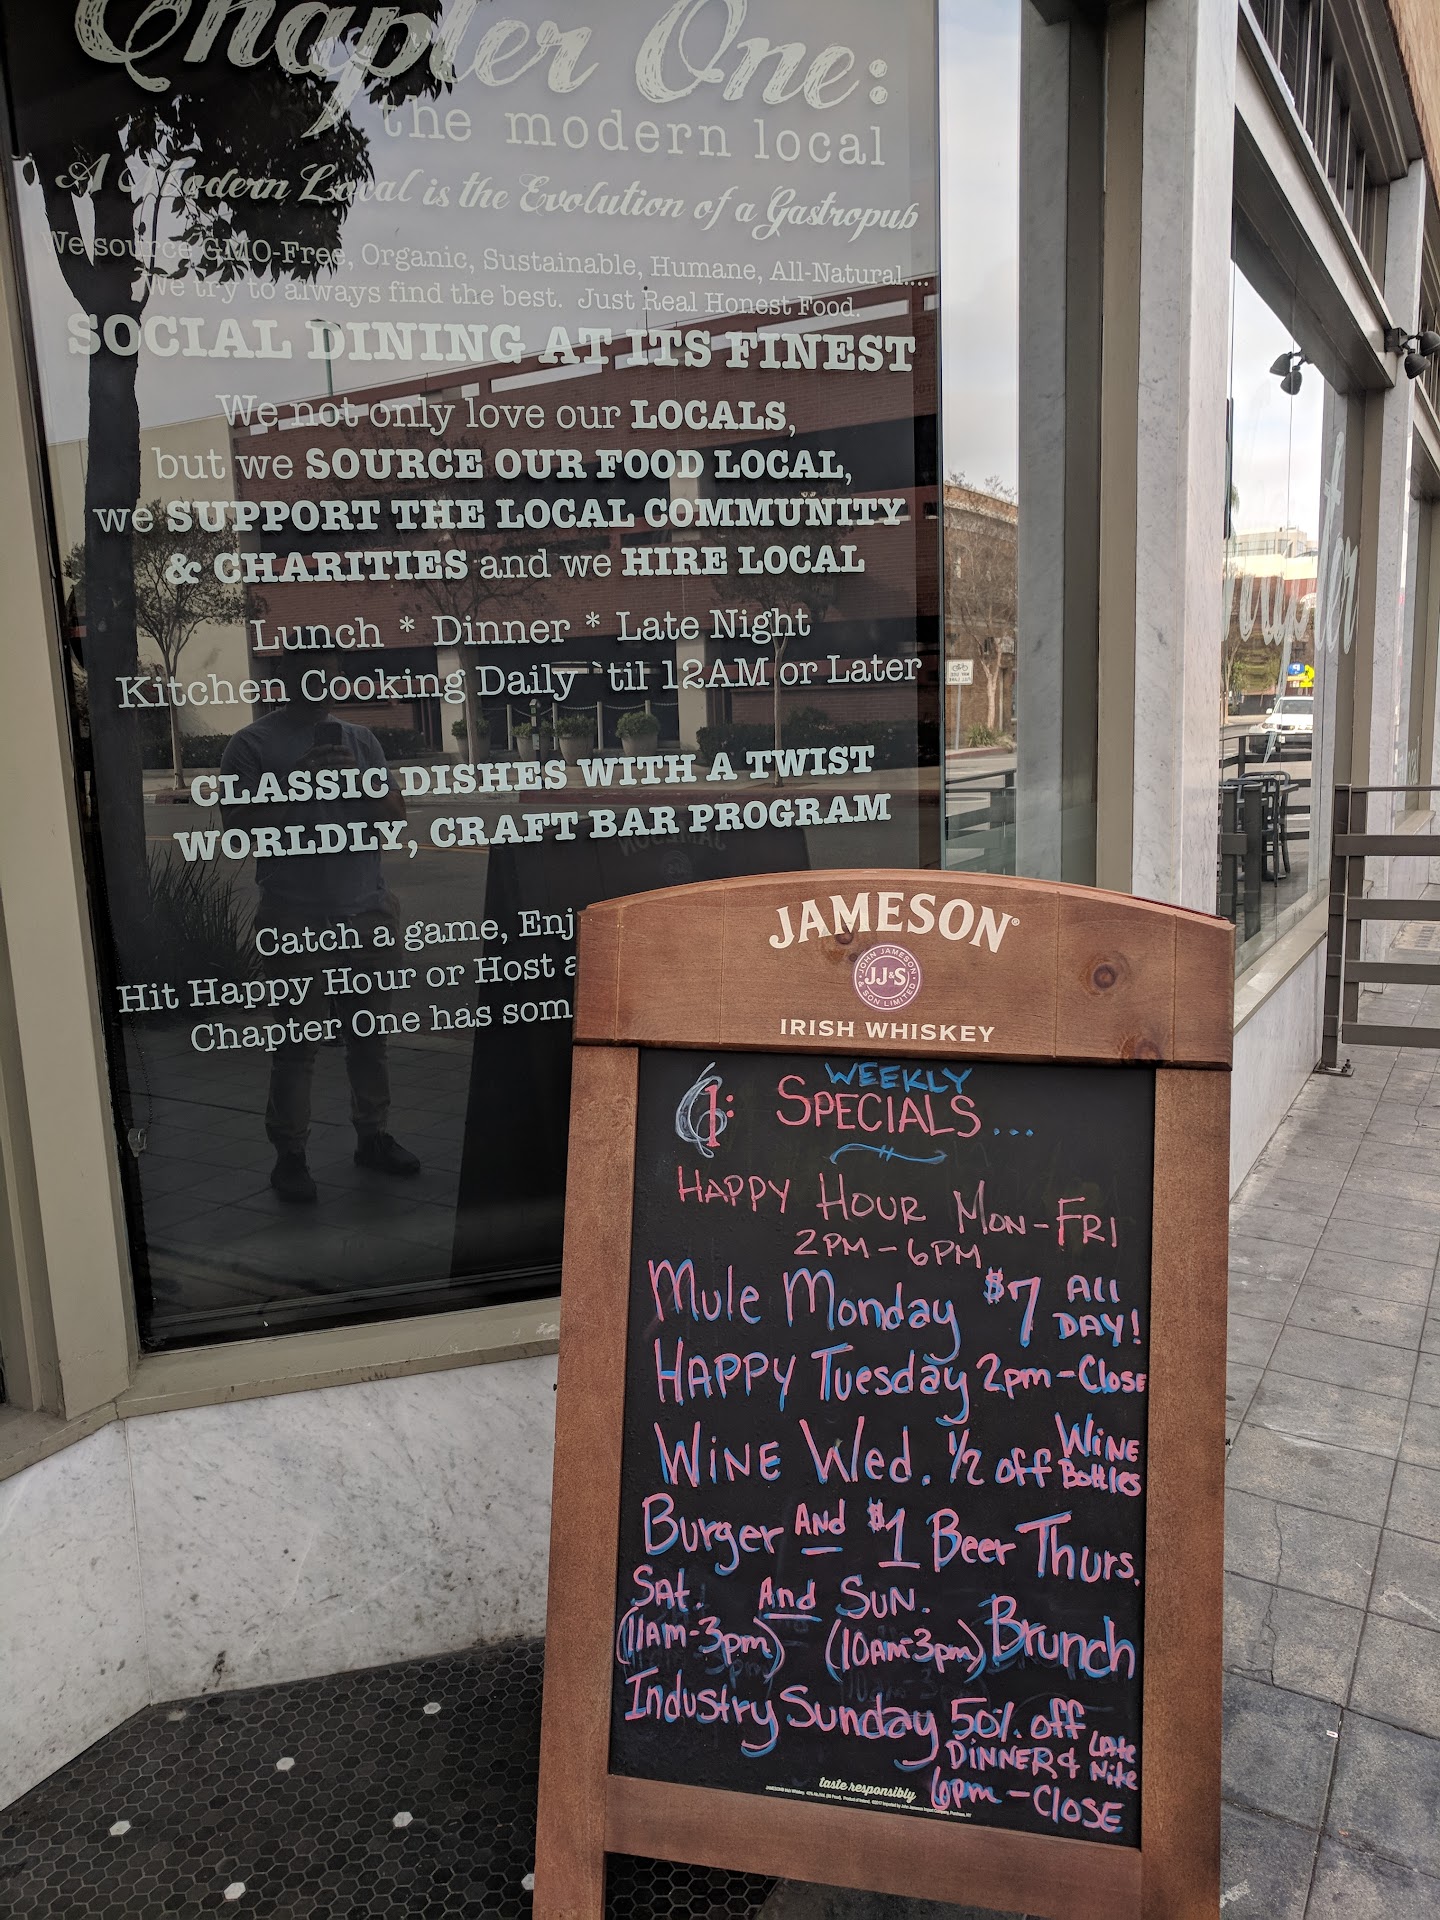 Chapter One:
the modern local
A Modern Local is the Evolution of a Gastropub
We source GMO-Free, Organic, Sustainable, Humane, All-Natural....
We try to always find the best. Just Real Honest Food.
SOCIAL DINING AT ITS FINEST
We not only love our LOCALS,
but we SOURCE OUR FOOD LOCAL,
we SUPPORT THE LOCAL COMMUNITY
& CHARITIES and we HIRE LOCAL
Lunch * Dinner * Late Night
Kitchen Cooking Daily `til 12AM or Later
CLASSIC DISHES WITH A TWIST
WORLDLY, CRAFT BAR PROGRAM
Catch a game, Enj
Hit Happy Hour or Host a
Chapter One has som
JAMESON®
JOHN JAMESON
JJ&S
& SON LIMITED
IRISH WHISKEY
1:
WEEKLY
SPECIALS...
HAPPY HOUR MON-FRI
2PM-6PM
Mule Monday $7 All DAY!
HAPPY Tuesday 2pm-Close
WiNE Wed. 1/2 off WiNE Bottles
Burger AND $1 Beer Thurs.
SAt. And SUN.
(11AM-3pm) (10AM-3pm) Brunch
Industry Sunday 50% off
DiNNER & LAte Nite
6pm-CloSE
taste responsibly